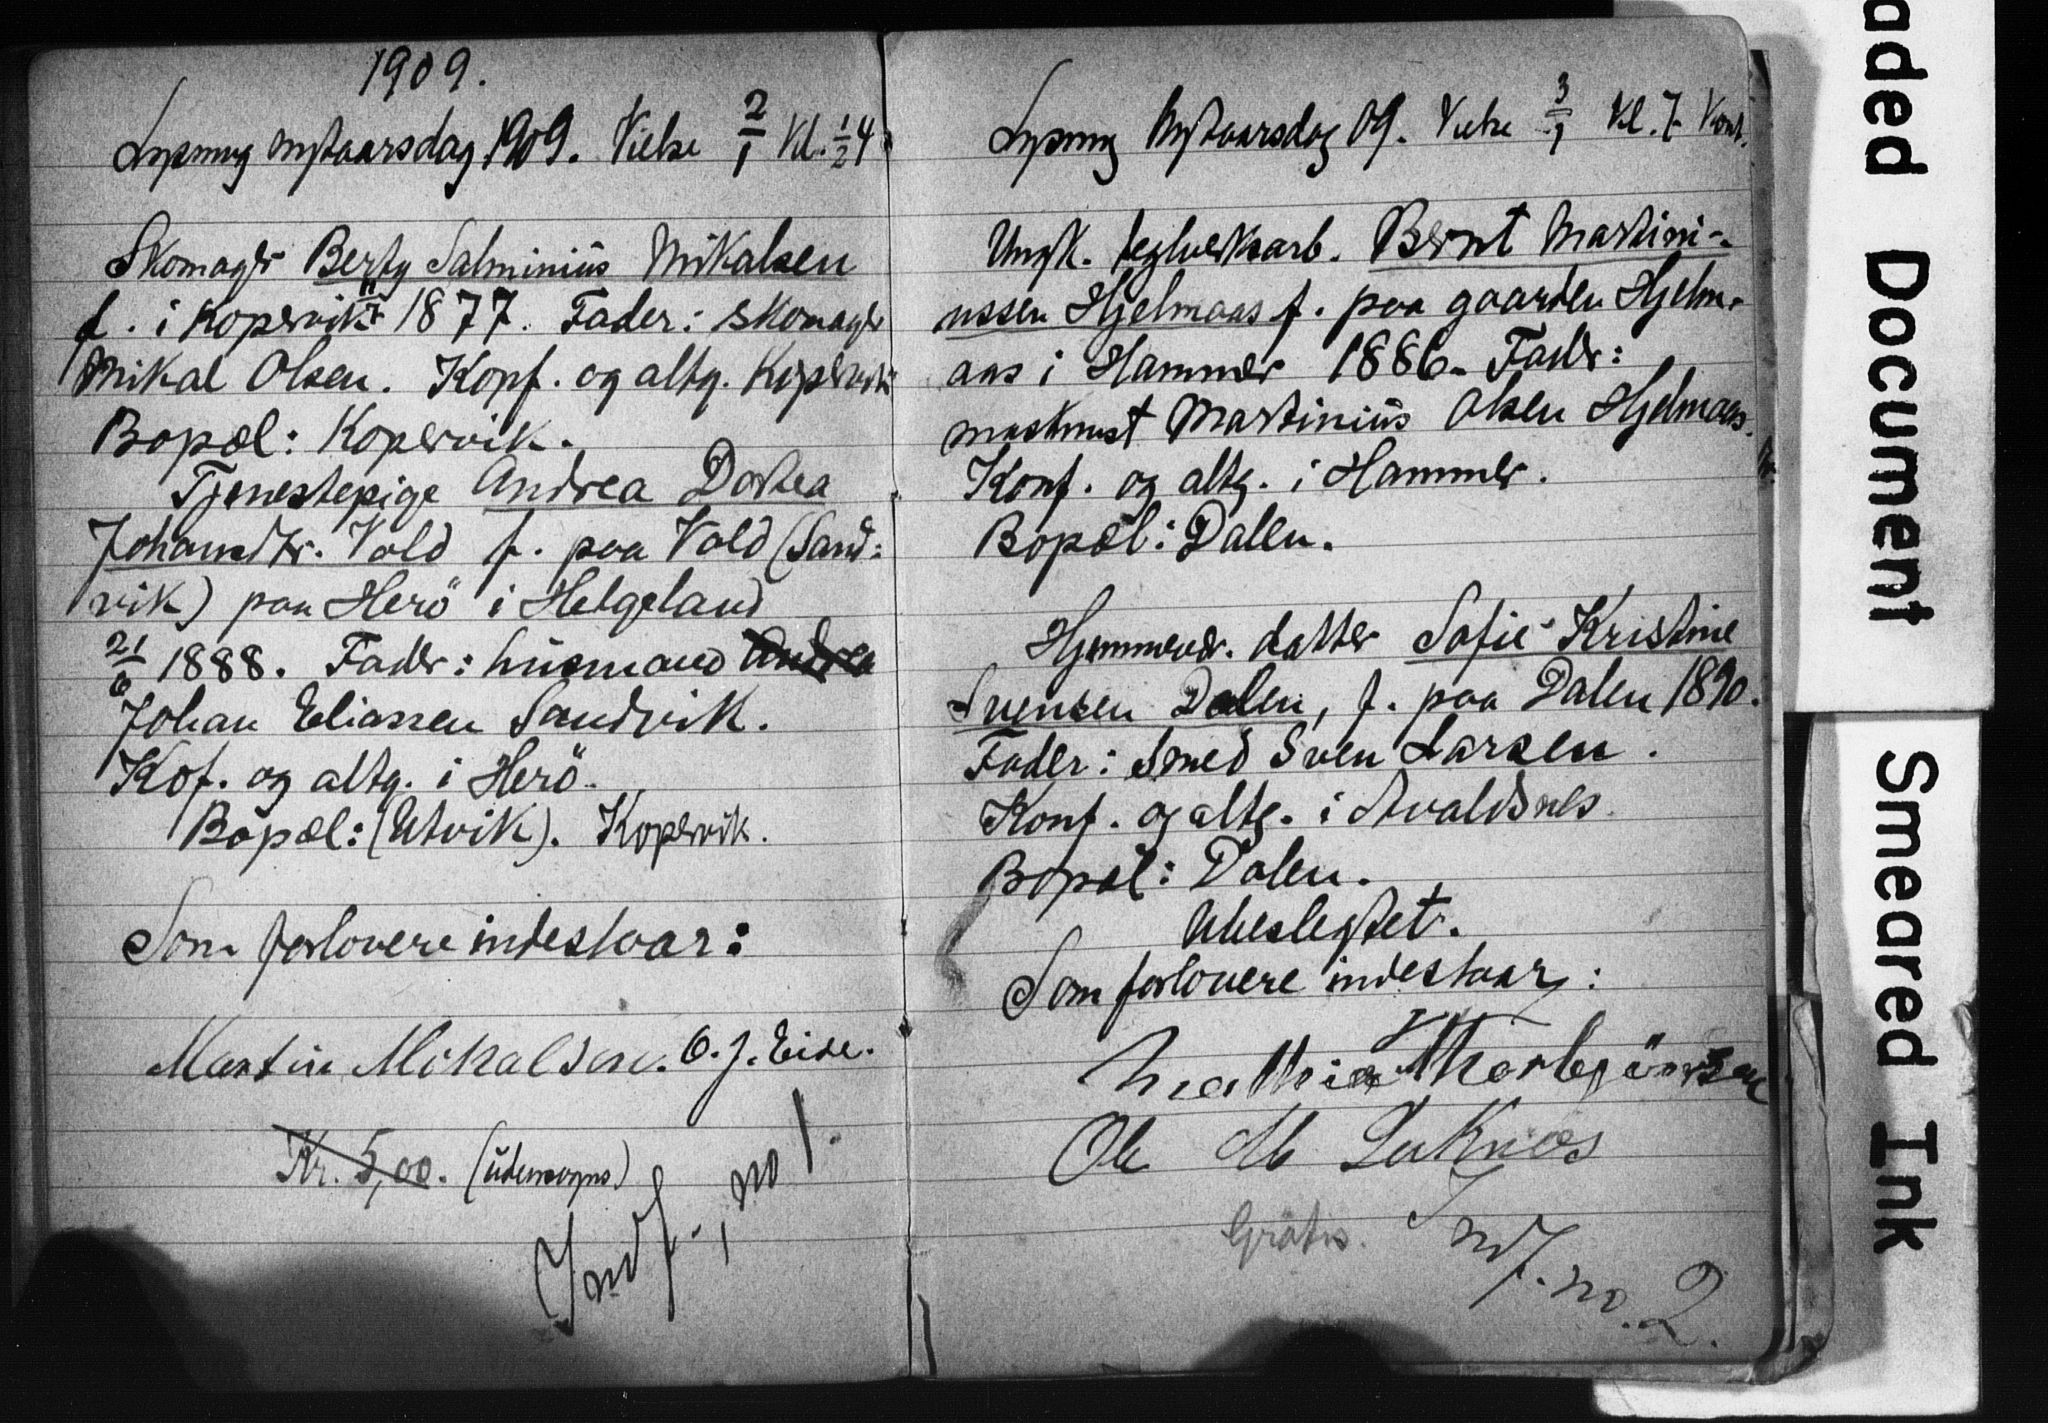 1909.
Lysning nytaarsdag 1909. Vielse 2/1 Kl. 1/2 4
Skomager Berty Salminius Mikalsen
f. i Kopervik 1877. Fader: skomager
Mikal Olsen. Konf. og altg. Kopervik
Bopæl: Kopervik.
Tjenestepige Andrea Dortea
Johansdtr. Vold f. paa Vold (Sand=
vik) paa Herö i Helgeland
21/6 1888. Fader: husmand Andrea
Johan Eliassen Sandvik.
Kof. og altg. i Herö.
Bopæl: (Utvik). Kopervik.
Som forlovere indestaar:
Martin Mikalsen. O. J. Eide.
Kr. 5,00. (udensogns)
Indf., no 1.
Lysning Nytaarsdag 09. Vielse 3/1 Kl. 7 Kont.
Ungk. teglverksarb. Bernt Martini-
ussen Hjelmaas f. paa gaarden Hjelm-
aas i Hammer 1886. Fader:
maskinist Martinius Olsen Hjelmaas.
Konf. og altg. i Hammer.
Bopæl: Dalen.
Hjemmevær. datter Sofie Kristine
Svensen Dalen, f. paa Dalen 1890.
Fader: Smed Sven Larsen.
Konf. og altg. i Avaldsnes.
Bopæl: Dalen.
Ubeslegtet.
Som forlovere indestaar:
Mathias Thorbjörnsen
Ole M Luknæs
Gratis.
Indf. no. 2.
aded Document
Smeared Ink